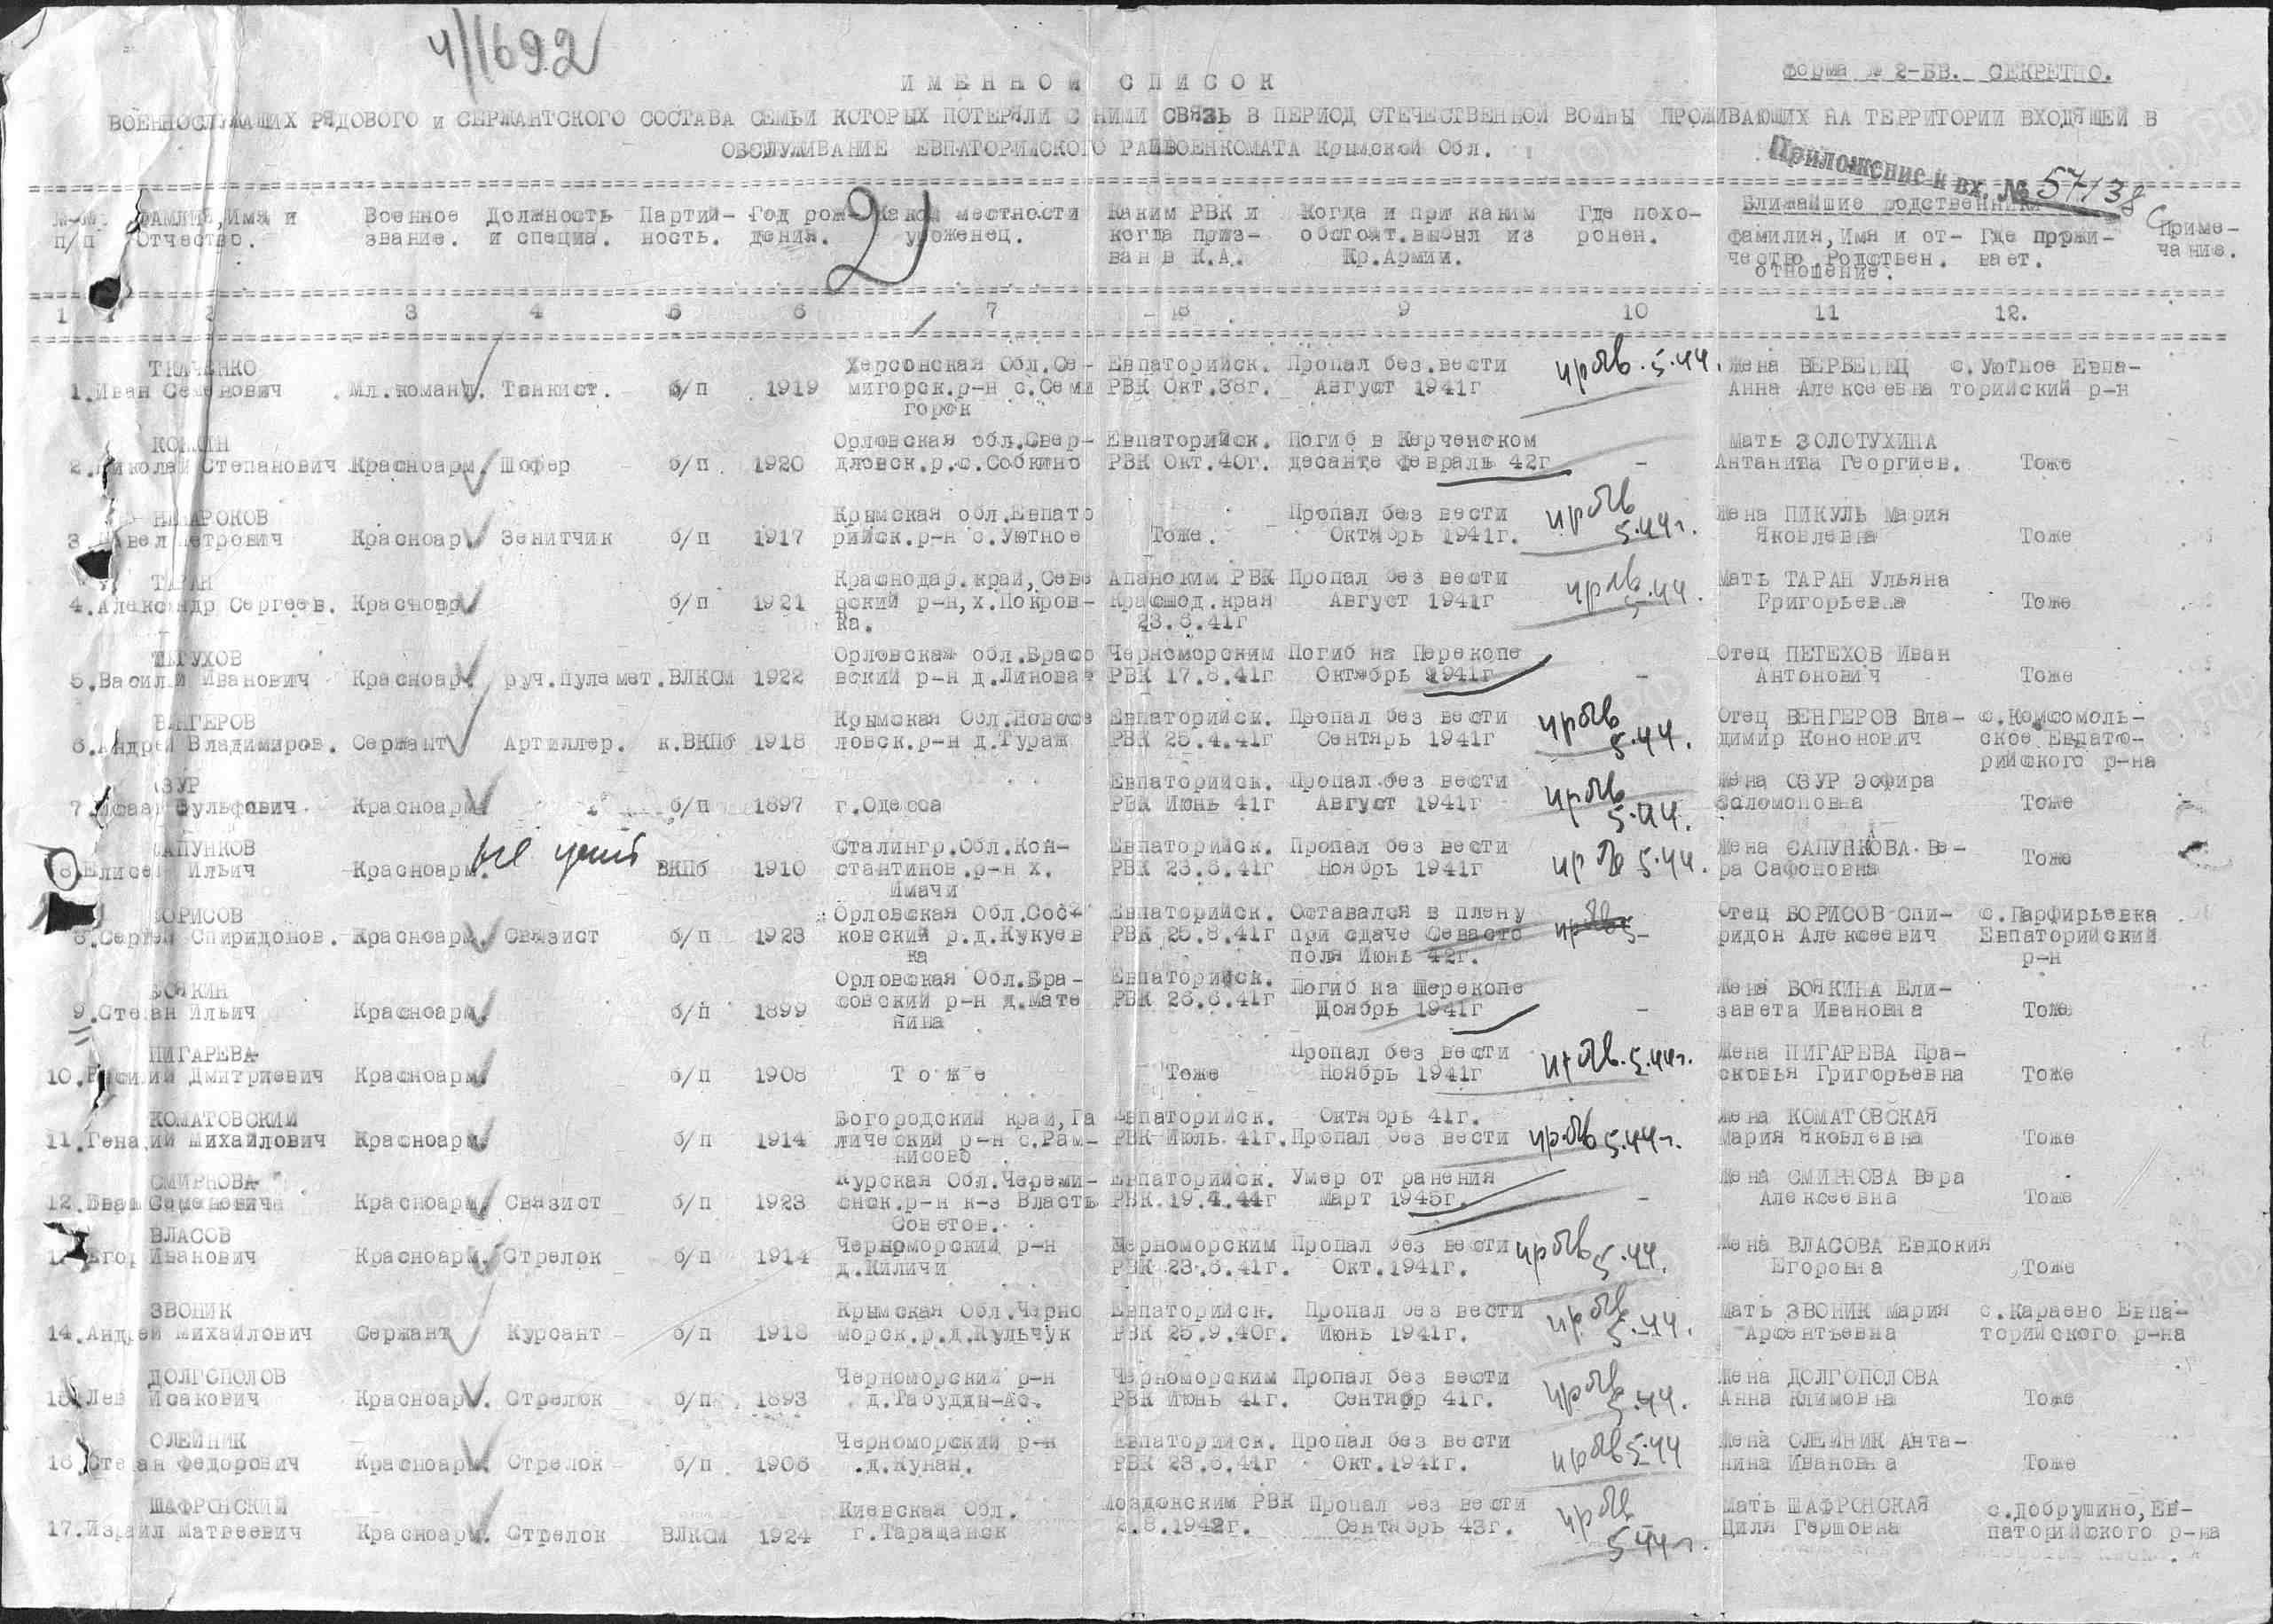 4/1692
Форма № 2-БВ. СЕКРЕТНО.
ИМЕННОЙ СПИСОК
ВОЕННОСЛУЖАЩИХ РЯДОВОГО и СЕРЖАНТСКОГО СОСТАВА СЕМЬИ КОТОРЫХ ПОТЕРЯЛИ С НИМИ СВЯЗЬ В ПЕРИОД ОТЕЧЕСТВЕННОЙ ВОЙНЫ ПРОЖИВАЮЩИХ НА ТЕРРИТОРИИ ВХОДЯЩЕЙ В
ОБСЛУЖИВАНИЕ ЕВПАТОРИЙСКОГО РАЙВОЕНКОМАТА Крымской Обл.
Приложение к вх. № 57138 с
№-№ ФАМЛИЯ, Имя и Военное Должность Партий- Год рож- Какой местности Каким РВК и Когда и при каким Где похо- Ближайшие родственники Приме-
п/п Отчество. звание. и специа. ность. дения. уроженец. когда приз- обстоят. выбыл из ронен. фамилия, Имя и от- Где прожи- чание.
ван в К.А. Кр.Армии. чество Родствен. вает.
отношение.
1 2 3 4 5 6 7 8 9 10 11 12.
ТКАЧЕНКО Херсонская Обл.Се- Евпаторийск. Пропал без вести 5.44. Жена ВЕРБЕНЕЦ с.Уютное Евпа-
1.Иван Семенович Мл.команд. Танкист. б/п 1919 мигорск.р-н с.Семи РВК Окт.38г. Август 1941г Анна Алексеевна торийский р-н
горск
Орловская обл.Свер- Евпаторийск. Погиб в Керченском Мать ЗОЛОТУХИНА
2.Николай Степанович Красноарм. Шофер б/п 1920 дловск.р.с.Собкино РВК Окт.40г. десанте февраль 42г - Антанина Георгиев. Тоже
Крымская обл.Евпато Пропал без вести Жена ПИКУЛЬ Мария
3.Павел Петрович Красноар. Зенитчик б/п 1917 рийск.р-н с.Уютное Тоже. Октябрь 1941г. 5.44г. Яковлевна Тоже
ТАРАН Краснодар.край,Севе Апанским РВК Пропал без вести Мать ТАРАН Ульяна
4.Александр Сергеев. Красноар. б/п 1921 рский р-н,х.Покров- Краснод.края Август 1941г 5.44. Григорьевна Тоже
ка. 23.6.41г
Орловская обл.Брасо Черноморским Погиб на Перекопе Отец ПЕТЕХОВ Иван
5.Василий Иванович Красноар. руч.пулемет. ВЛКСМ 1922 вский р-н д.Линовая РВК 17.8.41г Октябрь 1941г - Антонович Тоже
ВЕНГЕРОВ Крымская Обл.Новосе Евпаторийск. Пропал без вести Отец ВЕНГЕРОВ Вла- с.Комсомоль-
6.Андрей Владимиров. Сержант Артиллер. к.ВКПб 1918 ловск.р-н д.Тураж РВК 25.4.41г Сентярь 1941г 5.44. димир Кононович ское Евпато-
рийского р-на
ОЗУР Евпаторийск. Пропал без вести Жена ОЗУР Эсфира
7. Зульфович Красноарм. б/п 1897 г.Одесса РВК Июнь 41г Август 1941г 5.44. Соломоновна Тоже
САПУНКОВ Сталингр.Обл.Кон- Евпаторийск. Пропал без вести Жена САПУНКОВА Ве-
8 Елисей Ильич Красноарм. ВКПб 1910 стантинов.р-н х. РВК 23.6.41г Ноябрь 1941г 5.44. ра Сафоновна Тоже
Имачи
БОРИСОВ Орловская Обл.Сос- Евпаторийск. Оставался в плену Отец БОРИСОВ Спи- с.Парфирьевка
8.Сергей Спиридонов. Красноарм. Связист б/п 1923 ковский р.д.Кукуев РВК 25.8.41г при сдаче Севасто - ридон Алексеевич Евпаторийский
ка поля Июнь 42г. р-н
БОЯКИН Орловская Обл.Бра- Евпаторийск. Погиб на Перекопе Жена БОЯКИНА Ели-
9.Степан Ильич Красноарм. б/п 1899 совский р-н д.Мате РВК 26.6.41г Ноябрь 1941г - завета Ивановна Тоже
нина
ПИГАРЕВА Пропал без вести 5.44г. Жена ПИГАРЕВА Пра-
10.Василий Дмитриевич Красноарм. б/п 1908 Тоже Тоже Ноябрь 1941г сковья Григорьевна Тоже
КОМАТОВСКИЙ Богородский край,Га Евпаторийск. Октябрь 41г. Жена КОМАТОВСКАЯ
11.Генадий Михайлович Красноарм. б/п 1914 лический р-н с.Рам- РВК Июль 41г. Пропал без вести 5.44г. Мария Яковлевна Тоже
нисово
СМИРНОВА Курская Обл.Череми- Евпаторийск. Умер от ранения Жена СМИРНОВА Вера
12.Иван Семеновича Красноарм. Связист б/п 1923 снск.р-н к-з Власть РВК 19.4.44г Март 1945г. - Алексеевна Тоже
Советов.
ВЛАСОВ Черноморский р-н Черноморским Пропал без вести Жена ВЛАСОВА Евдокия
Егор Иванович Красноарм. Стрелок б/п 1914 д.Киличи РВК 23.6.41г. Окт.1941г. 5.44. Егоровна Тоже
ЗВОНИК Крымская Обл.Черно Евпаторийск. Пропал без вести Мать ЗВОНИК Мария с.Караево Евпа-
14.Андрей Михайлович Сержант Курсант б/п 1918 морск.р.д.Кульчук РВК 25.9.40г. Июнь 1941г. 5.44. Арсентьевна торийского р-на
ДОЛГОПОЛОВ Черноморский р-н Черноморским Пропал без вести Жена ДОЛГОПОЛОВА
15.Лев Исакович Красноарм. Стрелок б/п 1893 д.Табудян-Ас. РВК Июнь 41г. Сентябр 41г. 5.44. Анна Климовна Тоже
ОЛЕЙНИК Черноморский р-н Евпаторийск. Пропал без вести 5.44 Жена ОЛЕЙНИК Анта-
16.Степан Федорович Красноарм. Стрелок б/п 1906 .д.Кунан. РВК 23.6.41г Окт.1941г. нина Ивановна Тоже
ШАФРОНСКИЙ Киевская Обл. Моздокским РВК Пропал без вести Мать ШАФРОНСКАЯ с.Добрушино,Ев-
17.Израил Матвеевич Красноарм. Стрелок ВЛКСМ 1924 г.Таращанск 2.8.1942г. Сентябрь 43г. 5.44г. Циля Гершовна паторийского р-на